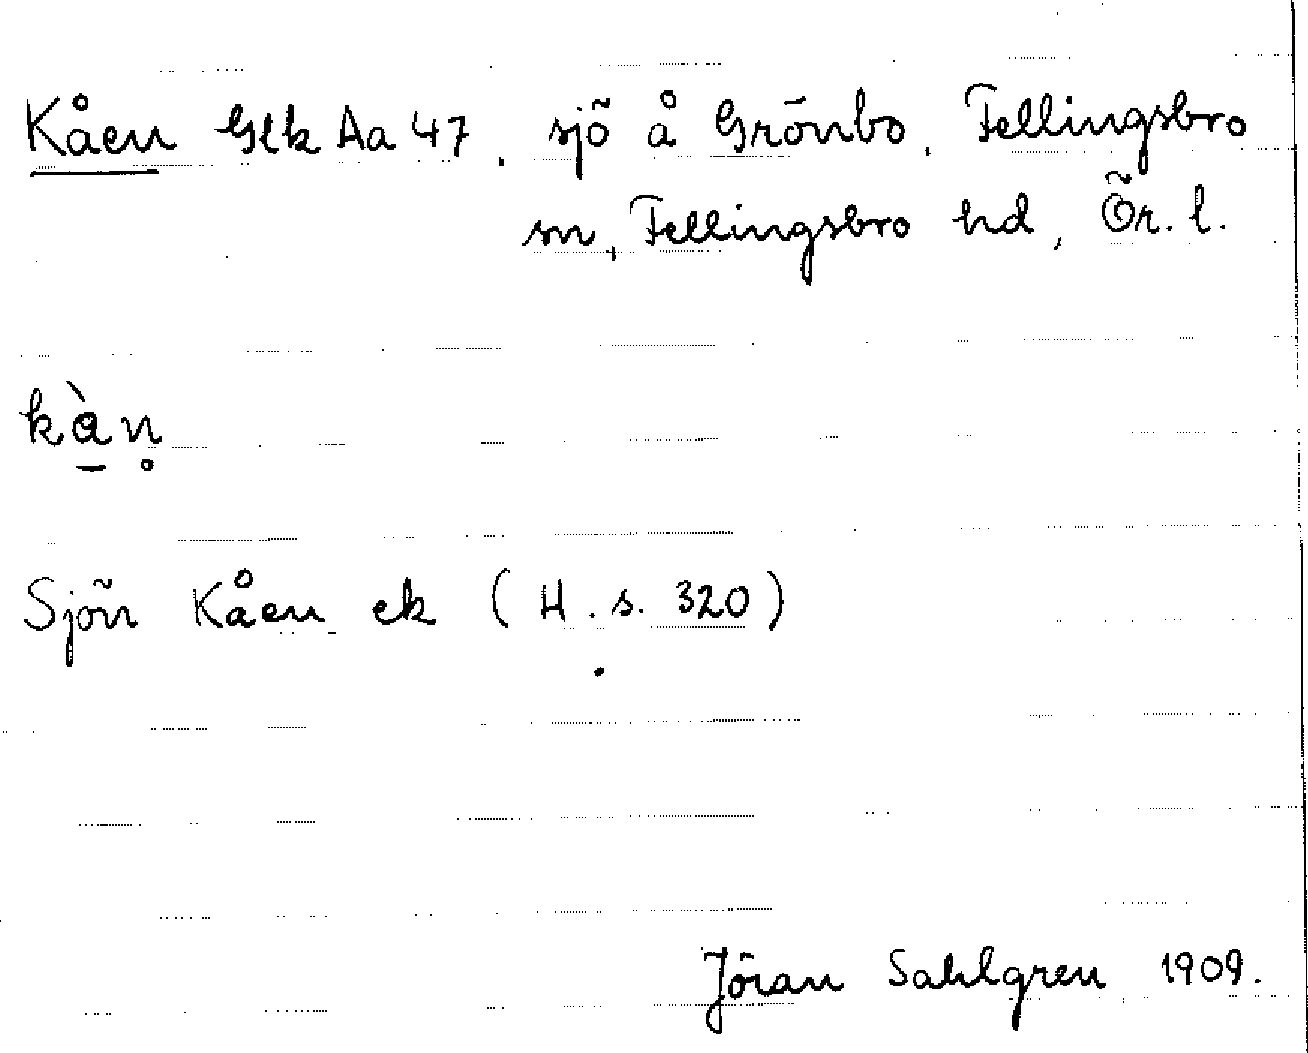 Kåen Gtk Aa 47. sjö å Grönbo, Fellingsbro
sn, Fellingsbro hd, Ör. l.
kàn̥
Sjön Kåen ek (H. s. 320)
Jöran Sahlgren 1909.